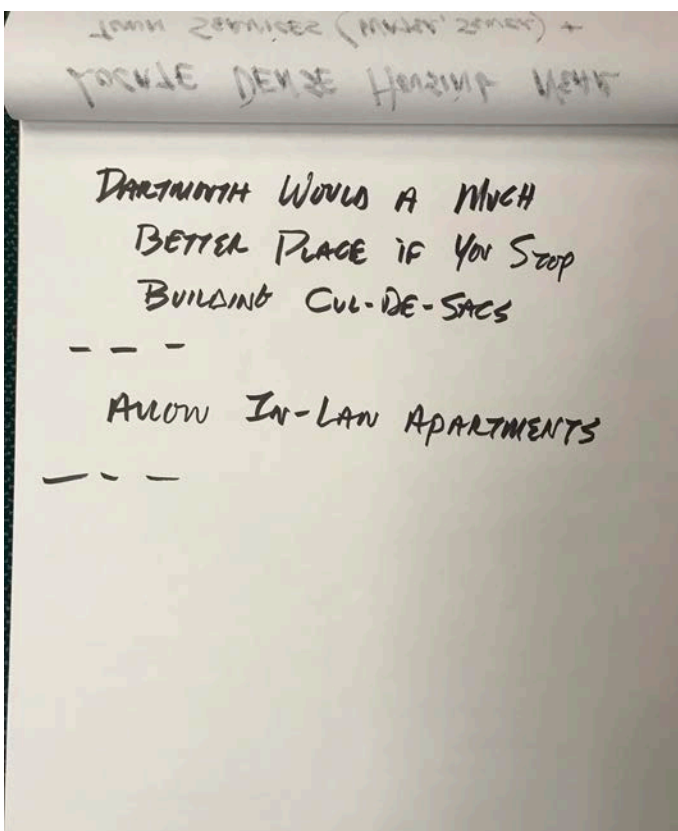 Town Services (water, sewer) +
Locate Dense Housing Near
DARTMOUTH WOULD A MUCH
BETTER PLACE IF YOU STOP
BUILDING CUL-DE-SACS
---
ALLOW IN-LAW APARTMENTS
---